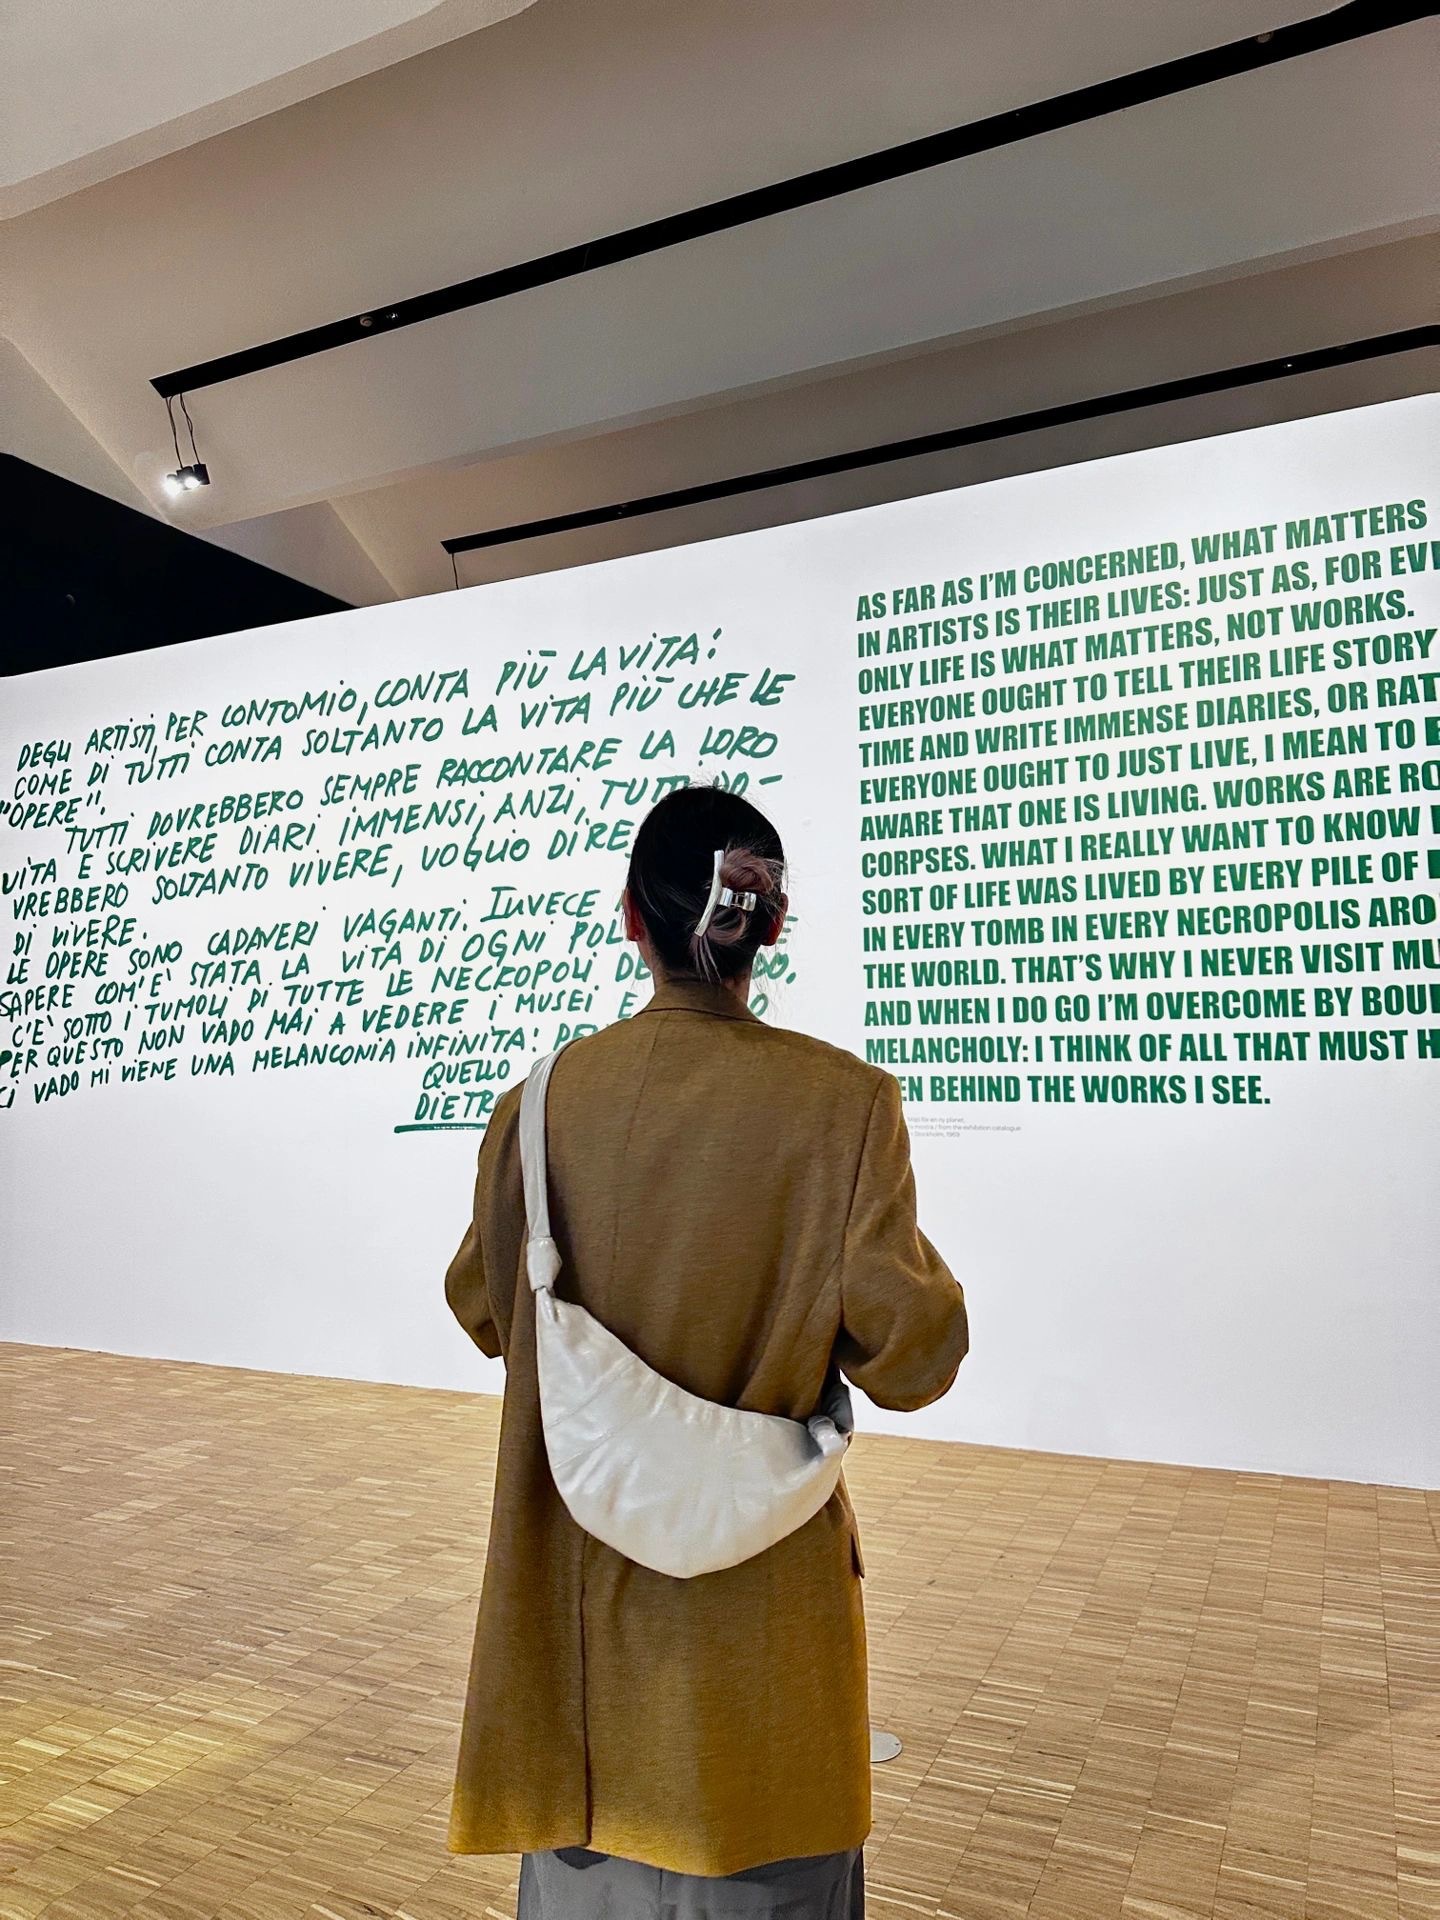 DEGLI ARTISTI, PER CONTO MIO, CONTA PIÙ LA VITA:
COME DI TUTTI CONTA SOLTANTO LA VITA PIÙ CHE LE
"OPERE".
TUTTI DOVREBBERO SEMPRE RACCONTARE LA LORO
VITA E SCRIVERE DIARI IMMENSI, ANZI, TUTTI DO-
VREBBERO SOLTANTO VIVERE, VOGLIO DIRE
DI VIVERE.
LE OPERE SONO CADAVERI VAGANTI. INVECE
SAPERE COM'È STATA LA VITA DI OGNI POL
C'È SOTTO I TUMOLI DI TUTTE LE NECROPOLI DE
PER QUESTO NON VADO MAI A VEDERE I MUSEI E
CI VADO MI VIENE UNA MELANCONIA INFINITA:
QUELLO
DIETRO
AS FAR AS I'M CONCERNED, WHAT MATTERS
IN ARTISTS IS THEIR LIVES: JUST AS, FOR EVE
ONLY LIFE IS WHAT MATTERS, NOT WORKS.
EVERYONE OUGHT TO TELL THEIR LIFE STORY
TIME AND WRITE IMMENSE DIARIES, OR RAT
EVERYONE OUGHT TO JUST LIVE, I MEAN TO B
AWARE THAT ONE IS LIVING. WORKS ARE RO
CORPSES. WHAT I REALLY WANT TO KNOW
SORT OF LIFE WAS LIVED BY EVERY PILE OF
IN EVERY TOMB IN EVERY NECROPOLIS ARO
THE WORLD. THAT'S WHY I NEVER VISIT MU
AND WHEN I DO GO I'M OVERCOME BY BOU
MELANCHOLY: I THINK OF ALL THAT MUST H
EN BEHIND THE WORKS I SEE.
för en ny planet,
mostra / from the exhibition catalogue
Stockholm, 1969